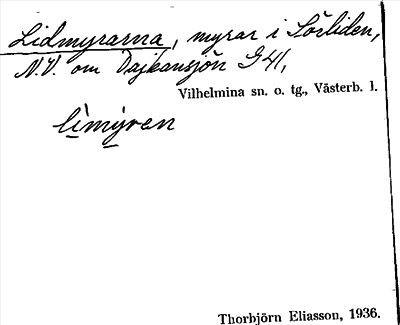 Lidmyrarna, myrar i Sörliden,
N.V. om Dajkansjön G41,
Vilhelmina sn. o. tg., Västerb. l.
li̱my̱ren
Thorbjörn Eliasson, 1936.